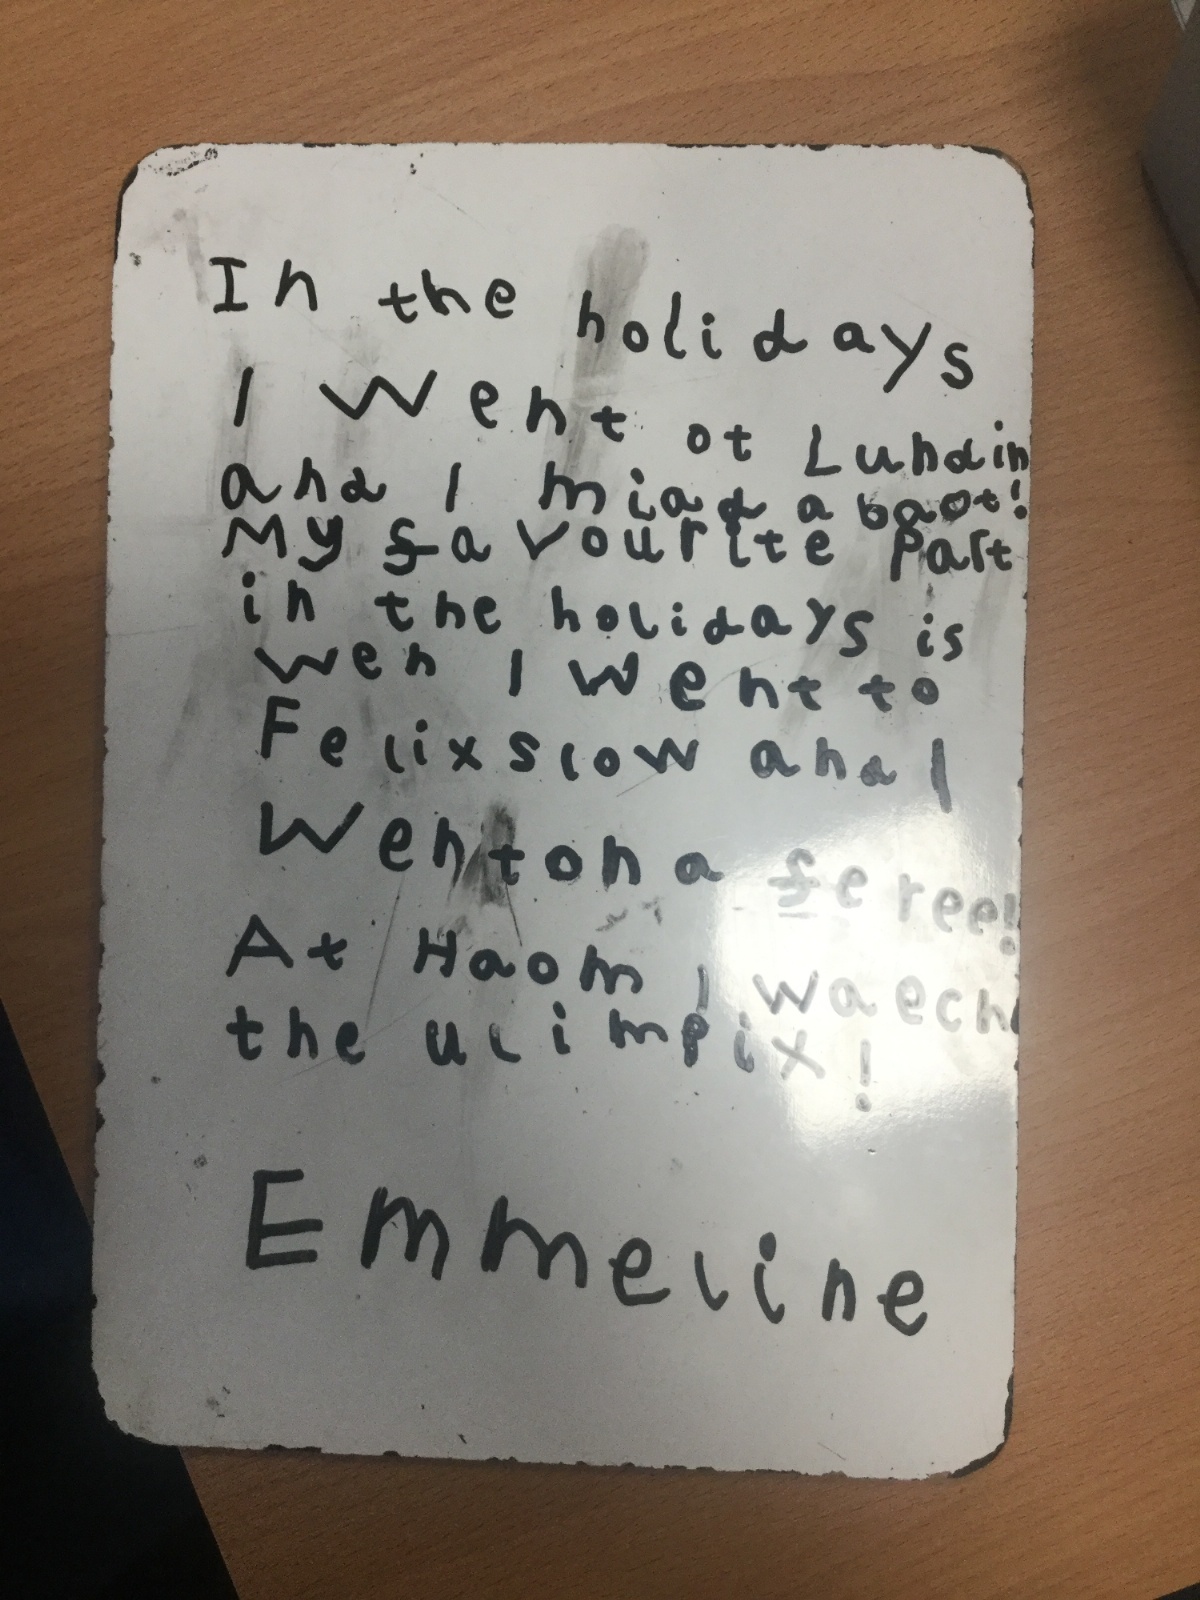 In the holidays
I Went ot Lundin
and I miad a baot!
My favourite part
in the holidays is
wen I went to
Felixslow and I
Went on a feree!
At Haom I waech
the ulimpix!
Emmeline